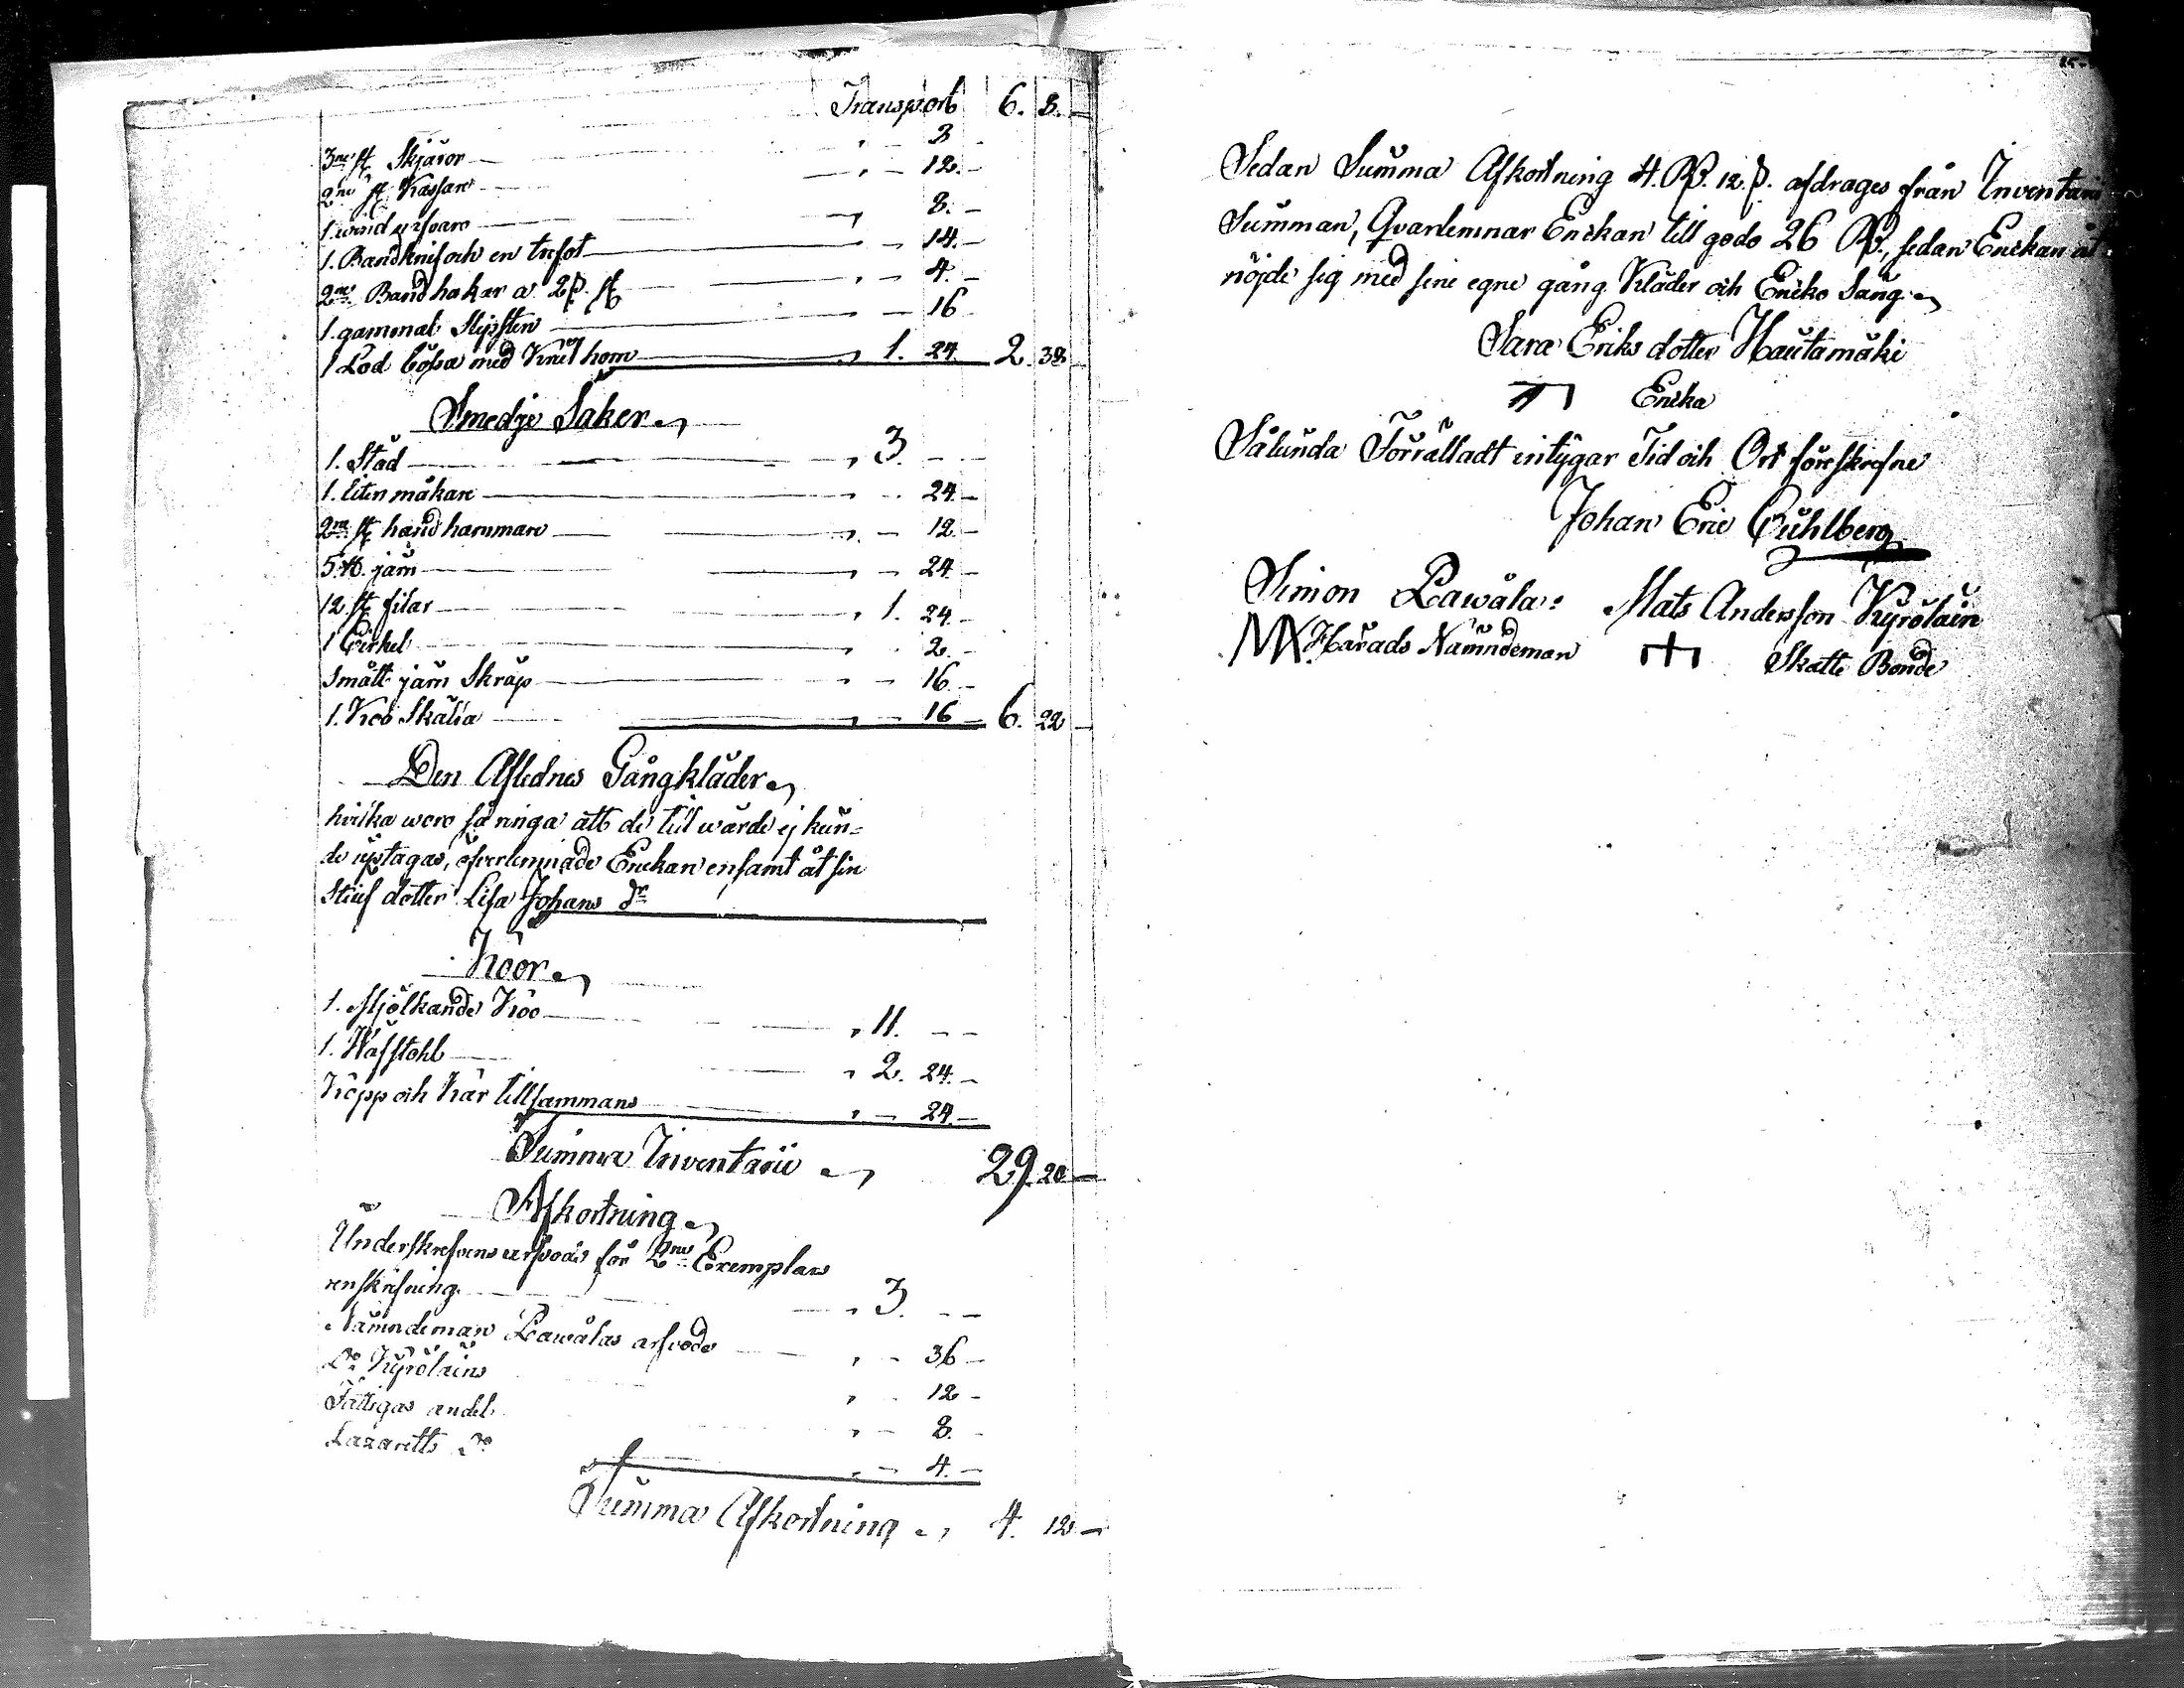 Transport 6. 8. –
3ne st Skjäror – 8 –
2ne st Kassare – 12. –
1. wrid ursware – 8. –
1. Bandknif och en trefot – 14. –
2ne Band hakar a 2 ß. st – 4. –
1. gammal Slipsten – 16
1 Lod bössa med Krut horn 1. 24. 2. 38 –
Smedje Saker
1. Städ 3. – –
1. liten måkare – 24. –
2ne st hand hammare – 12. –
5. ℔. järn – 24. –
12 st filar 1. 24. –
1 Cirkel 2. –
Smått järn Skräp – 16. –
1. Koo Skälla – 16 – 6. 22 –
Den Aflednes Gångkläder
hvilka woro så ringa att de till wärde ej kun=
de uptagas, öfverlemnade Enckan ensamt åt sin
Stiuf dotter Lisa Johans dr
Koor
1. Mjölkande Koo 11. – –
1. Wäfstohl 2. 24. –
Kopp och Kär tillsammans – 24. –
Summa Inventarii 29. 20 –
Afkortning
Underskrefvens arfvode för 2ne Exemplars
renskrifning 3. – –
Nämndeman Lawälas arfvode – 36 –
Do Kyröläins 12 –
Fattigas andel – 8. –
Lazaretts Do – 4. –
Summa Afkortning 4. 12 –
Sedan Summa Afkortning 4. Rß. 12. ß. afdrages från Inventarii
Summan, Qvarlemnar Enckan till godo 26 Rß., sedan Enckan åt
nöjde sig med sine egne gång Kläder och Encko Säng
Sara Eriks dotter Hautamäki
Encka
Sålunda Förrättadt intygar Tid och Ort föreskrefne
Johan Eric Cuhlberg
Simon Lawäla: Mats Andersson Kyröläin
Härads Nämndeman Skatte Bonde